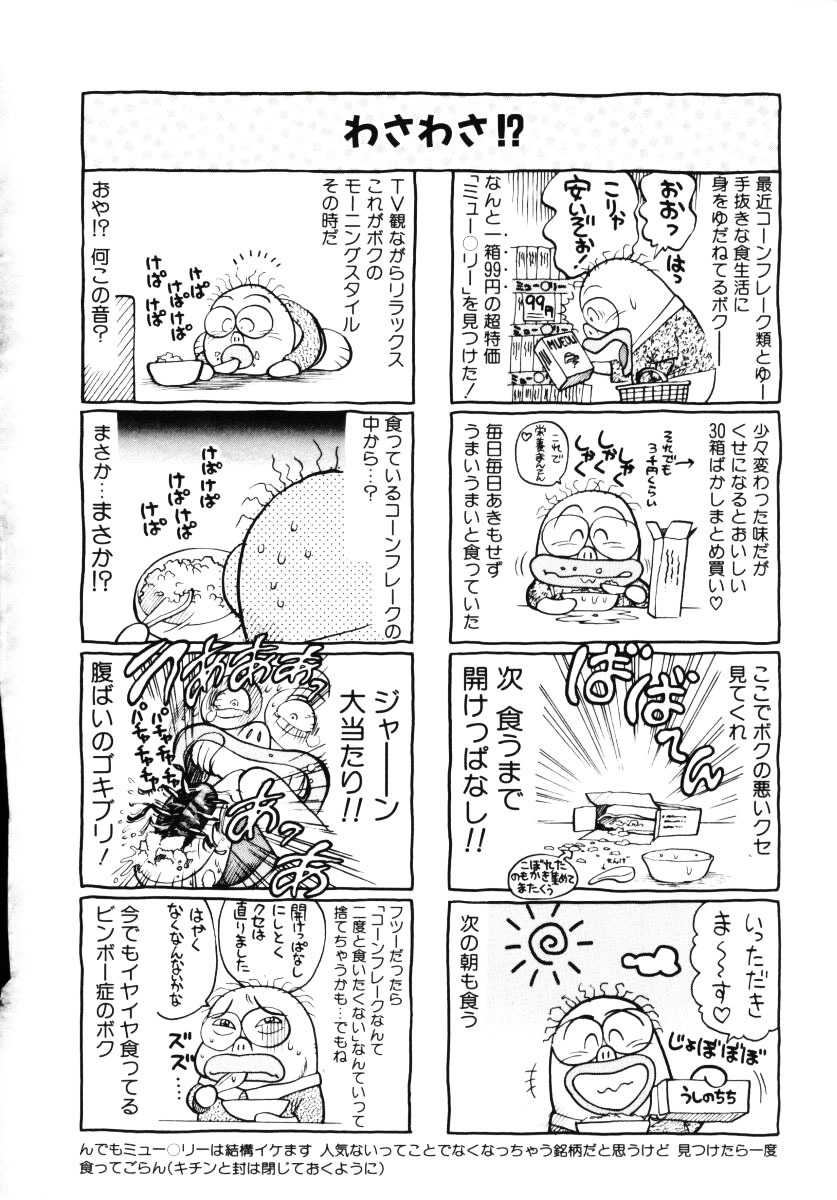 わさわさ!?
最近コーンフレーク類とゆー
手抜きな食生活に
身をゆだねてるボク——
おおっ
はっ
こりゃ
安いぞお!
ミュー○リー
99円
MUESLI
ミュー○リー
なんと一箱99円の超特価
「ミュー○リー」を見つけた!
少々変わった味だが
くせになるとおいしい
30箱ばかしまとめ買い♡
それでも
3千円くらい
→
しゃく
しゃく
しゃく
これで
栄養まんてん
♡
毎日毎日あきもせず
うまいうまいと食っていた
ここでボクの悪いクセ
見てくれ
ばばばーん
次 食うまで
開けっぱなし!!
こぼれた
のもかき集めて
またくう
いっただき
ま〜〜す♡
じょぼぼぼぼ
うしのちち
次の朝も食う
TV観ながらリラックス
これがボクの
モーニングスタイル
その時だ
けぱ
けぱけぱ
けぱ
おや!? 何この音?
食っているコーンフレークの
中から…?
けぱけぱ
けぱ
けぱ
けぱ
まさか…まさか!?
ジャーーン
大当たり!!
うああああっ
バチャバチャ
バチャバチャ
あっあ
腹ばいのゴキブリ!
フツーだったら
「コーンフレークなんて
二度と食いたくない」なんていって
捨てちゃうかも…でもね
開けっぱなし
にしとく
クセは
直りました
はやく
なくなんないかな
ズズ
ズ……
今でもイヤイヤ食ってる
ビンボー症のボク
んでもミュー○リーは結構イケます 人気ないってことでなくなっちゃう銘柄だと思うけど 見つけたら一度
食ってごらん(キチンと封は閉じておくように)